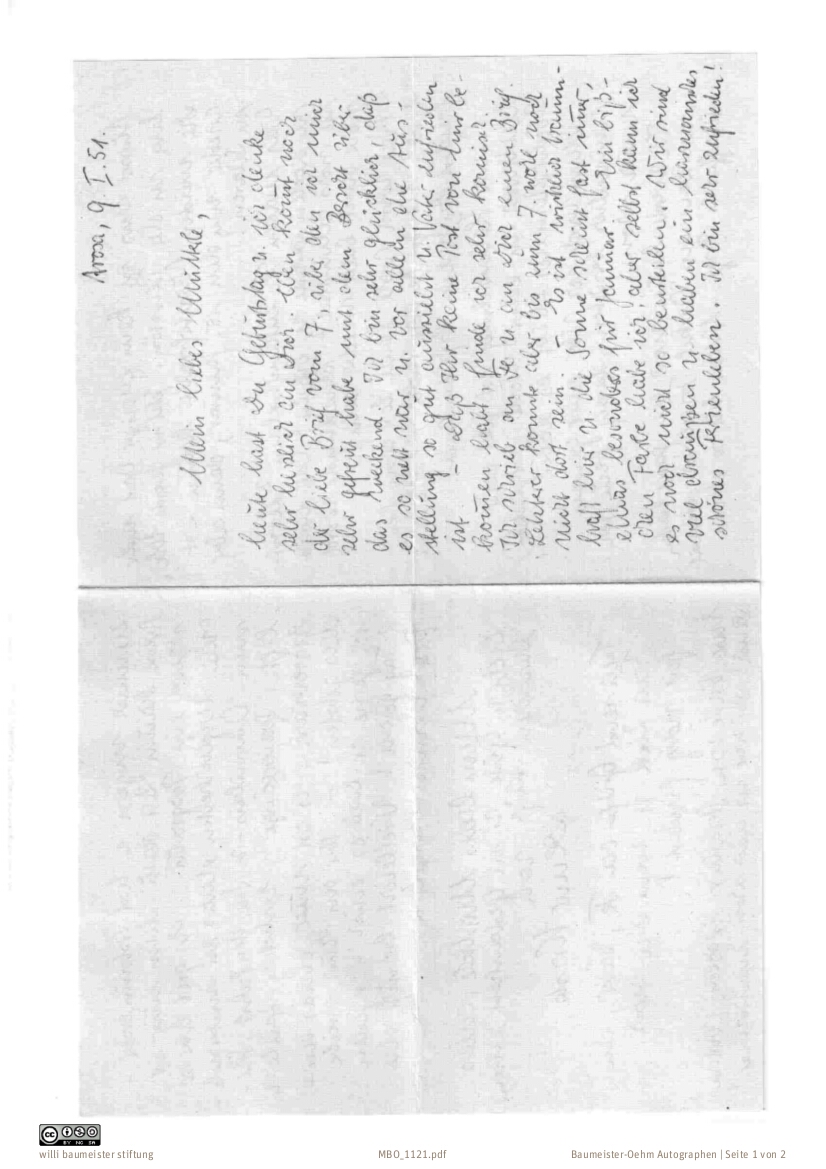 Arosa, 9. I. 51.
Mein liebes Muttle,
heute hast Du Geburtstag u. ich denke
sehr herzlich an Dich. Eben kommt noch
der liebe Brief vom 7., über den ich mich
sehr gefreut habe mit dem Bericht über
das Weekend. Ich bin sehr glücklich, daß
es so nett war u. vor allem die Aus-
stellung so gut aussieht u. Vater zufrieden
ist. – Daß Ihr keine Post von mir be-
kommen habt, finde ich sehr komisch.
Ich schrieb an Je u. an Dich einen Brief.
Letzter konnte aber bis zum 7. wohl noch
nicht dort sein. – Es ist wirklich traum-
haft hier u. die Sonne scheint fast immer,
etwas besonderes für Januar. Ein biß-
chen Farbe habe ich, aber selbst kann ich
es noch nicht so beurteilen. Wir sind
viel draußen u. haben ein
schönes Ferienleben. Ich bin sehr zufrieden!
BY NC SA
willi baumeister stiftung
MBO_1121.pdf
Baumeister-Oehm Autographen | Seite 1 von 2